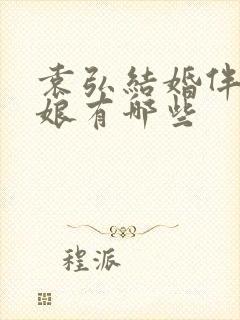 袁弘結婚伴
娘有哪些
程派